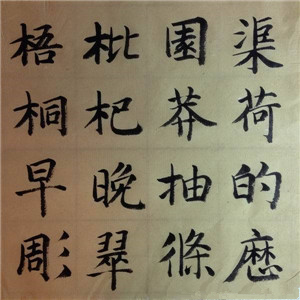 渠荷的歷
園莽抽條
枇杷晚翠
梧桐早彫